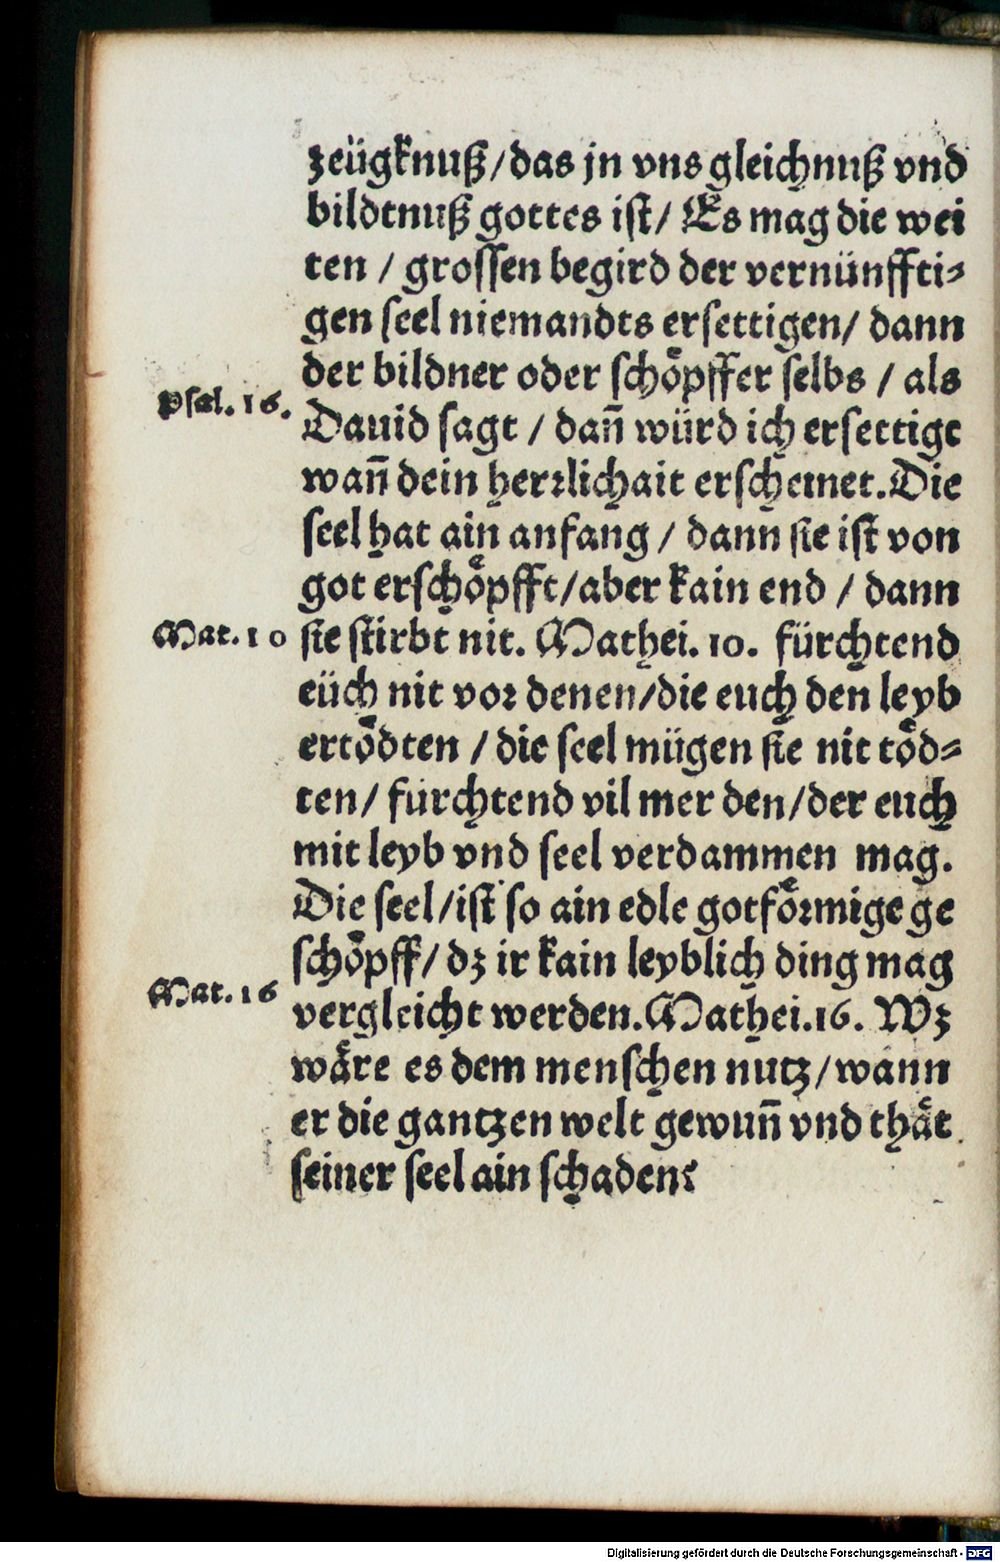 zeügknuß/das jn vns gleichnuß vnd
bildtnuß gottes ist/ Es mag die wei
ten / grossen begird der vernünffti-
gen seel niemandts ersettigen/ dann
der bildner oder schoͤpffer selbs / als
Psal. 16.
Dauid sagt / dañ würd ich ersettigt
wañ dein herrlichait erscheinet. Die
seel hat ain anfang / dann sie ist von
got erschoͤpfft/aber kain end / dann
Mat. 10
sie stirbt nit. Mathei. 10. fürchtend
eüch nit vor denen/die euch den leyb
ertoͤdten / die seel mügen sie nit toͤd-
ten/ fürchtend vil mer den/der euch
mit leyb vnd seel verdammen mag.
Die seel/ist so ain edle gotfoͤrmige ge
schoͤpff/ dz ir kain leyblich ding mag
Mat. 16
vergleicht werden. Mathei. 16. Wz
waͤre es dem menschen nutz/wann
er die gantzen welt gewuñ vnd thaͤt
seiner seel ain schaden?
Digitalisierung gefördert durch die Deutsche Forschungsgemeinschaft - DFG